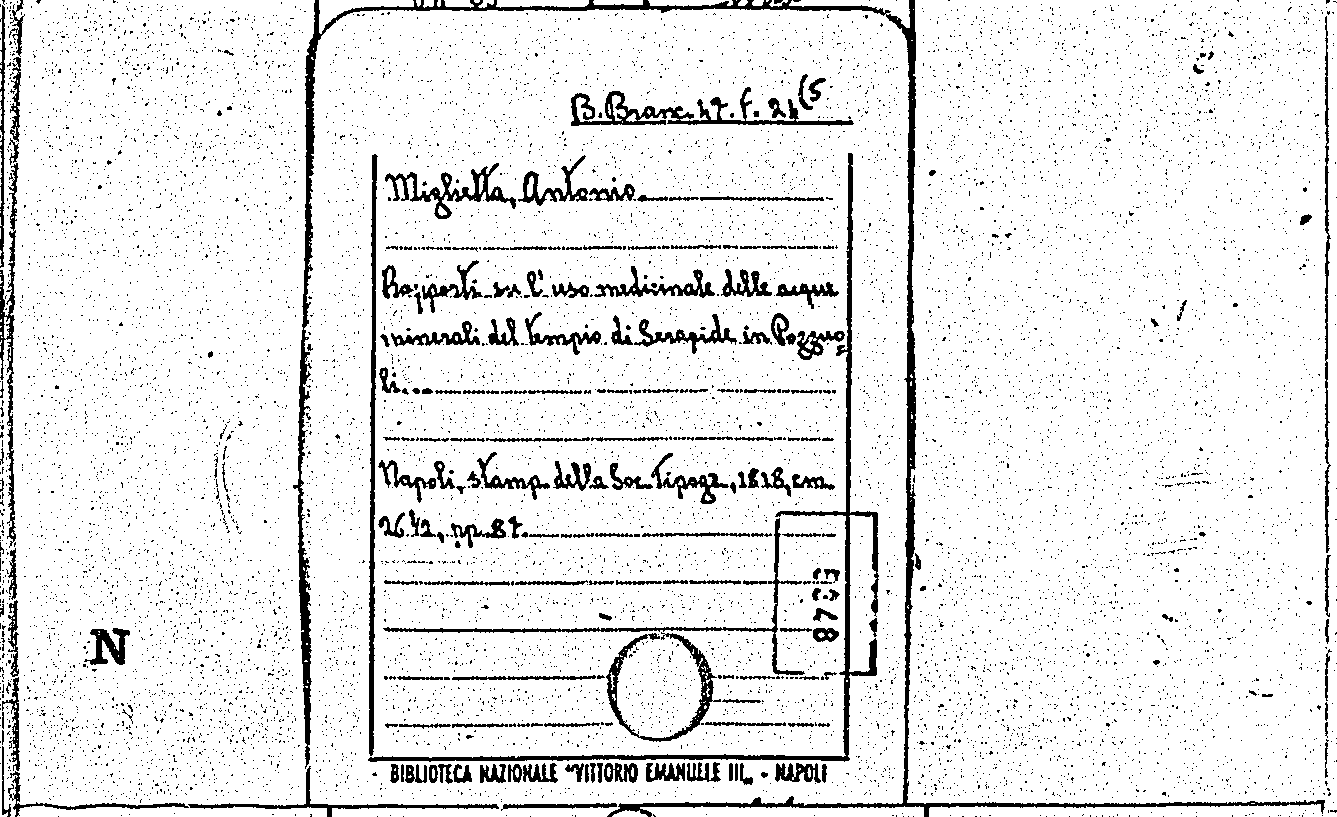 B. Branc. 47. F. 24(5
Miglietta, Antonio.
Rapporti su l'uso medicinale delle acque
minerali del tempio di Serapide in Pozzuo=
li...
Napoli, stamp. della Soc. Tipogr., 1818, cm.
26 1/2, pp. 87.
8 7
N
BIBLIOTECA NAZIONALE "VITTORIO EMANUELE III„ - NAPOLI